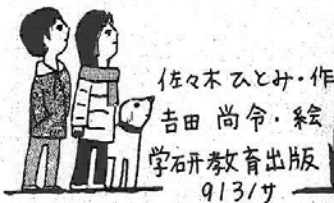 佐々木 ひとみ・作
吉田 尚令・絵
学研教育出版
913/サ